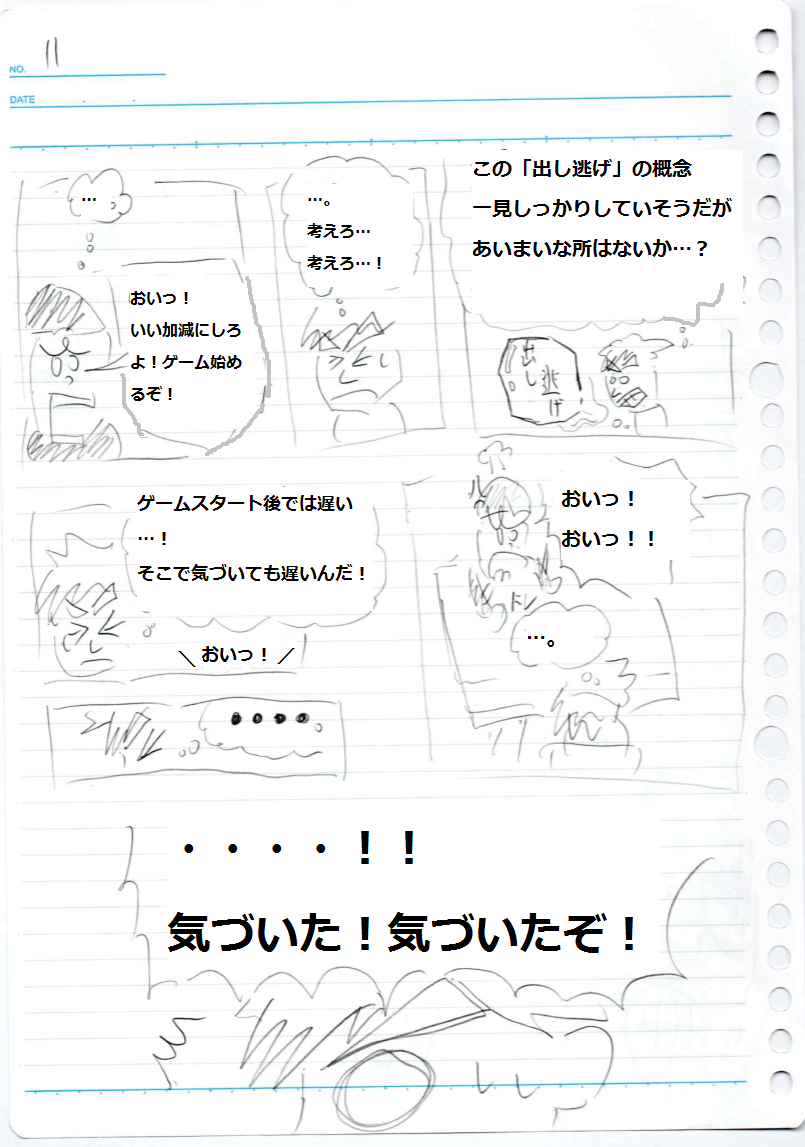 NO. 11
DATE
この「出し逃げ」の概念
一見しっかりしていそうだが
あいまいな所はないか…？
出し
逃げ
…。
考えろ…
考えろ…！
…
おいっ！
いい加減にしろ
よ！ゲーム始め
るぞ！
おいっ！
おいっ！！
ドン
…。
ゲームスタート後では遅い
…！
そこで気づいても遅いんだ！
＼ おいっ！ ／
●●●●
・・・・！！
気づいた！気づいたぞ！